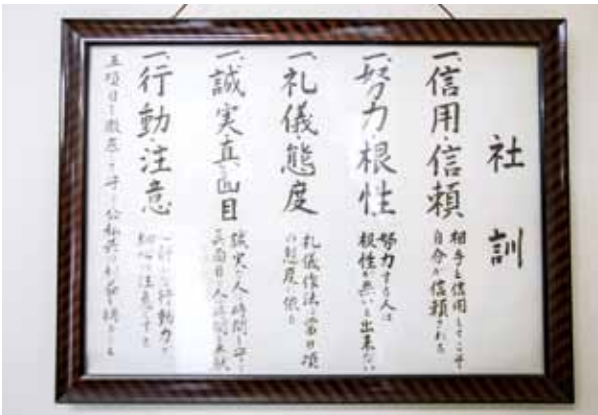 社訓
一、信用・信頼
相手を信用してこそ
自分が信頼される
一、努力・根性
努力する人は
根性が無いと出来ない
一、礼儀・態度
礼儀作法は常日頃
の態度に依る
一、誠実・真面目
誠実な人は時間を守り
真面目な人は時間
一、行動・注意
行動力
細心の注意
五項目を 守り公私共